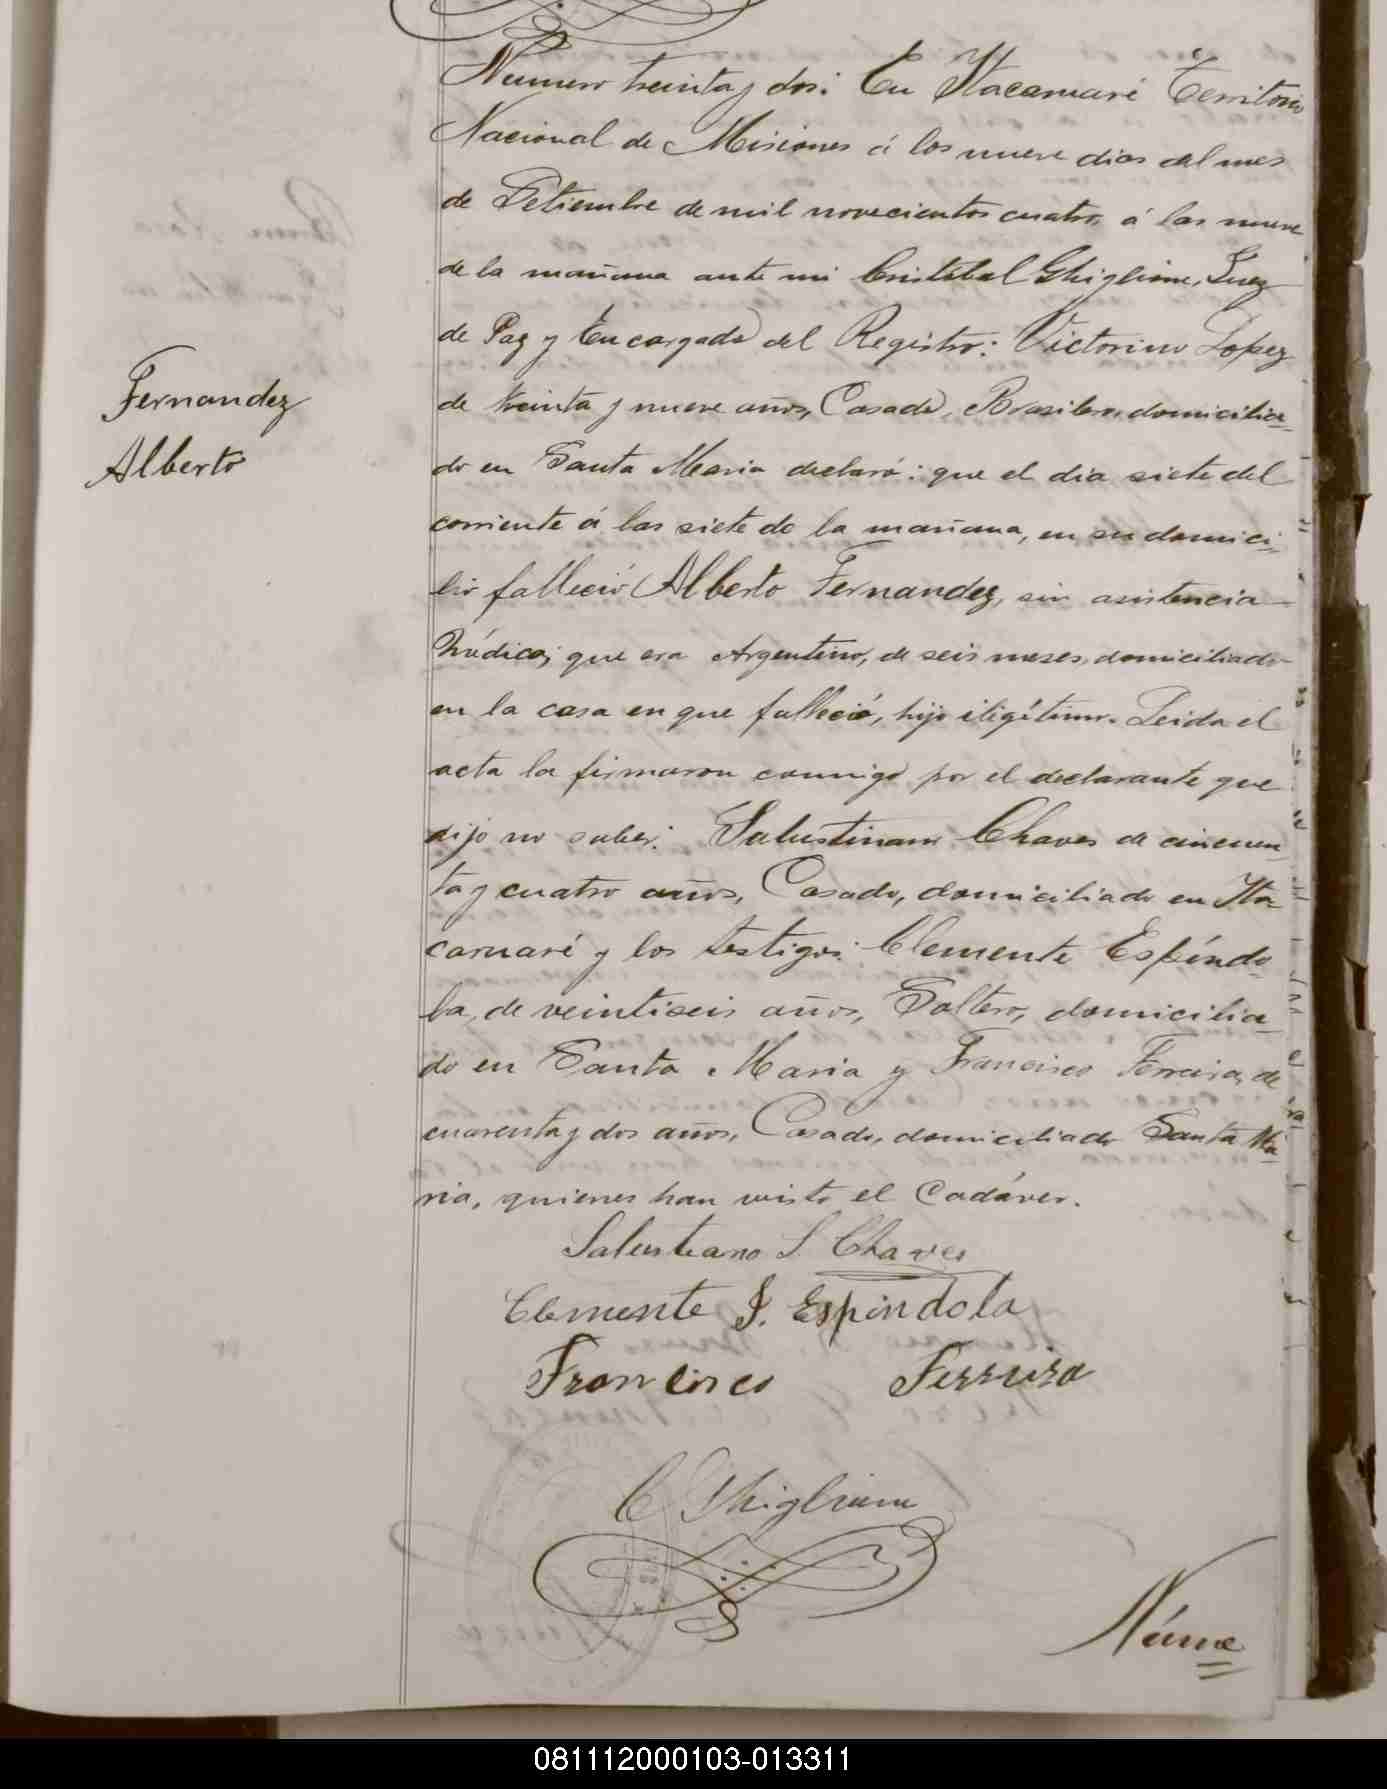 Numero treinta y dos: En Itacaruaré Territorio
Nacional de Misiones á los nueve dias del mes
de Setiembre de mil novecientos cuatro, á las nueve
de la mañana ante mi Cristóbal Ghiglione, Juez
de Paz y Encargado del Registro: Victorino Lopez
Fernandez
de treinta y nueve años, Casado, Brasilero, domicilia-
Alberto
do en Santa Maria declaró: que el dia siete del
corriente á las siete de la mañana, en su domici-
lio falleció Alberto Fernandez, sin asistencia
Médica; que era Argentino, de seis meses, domiciliado
en la casa en que falleció, hijo iligítimo. Leida el
acta la firmaron conmigo por el declarante que
dijo no saber: Salustiano Chaves de cincuen-
ta y cuatro años, Casado, domiciliado en Ita-
caruaré y los testigos: Clemente Espíndo-
la, de veintiseis años, Soltero, domicilia-
do en Santa Maria y Francisco Ferreira, de
cuarenta y dos años, Casado, domiciliado Santa Ma-
ria, quienes han visto el Cadáver.
Salustiano S. Chaves
Clemente I. Espindola
Francisco Ferreira
C Ghiglione
Núme
081112000103-013311